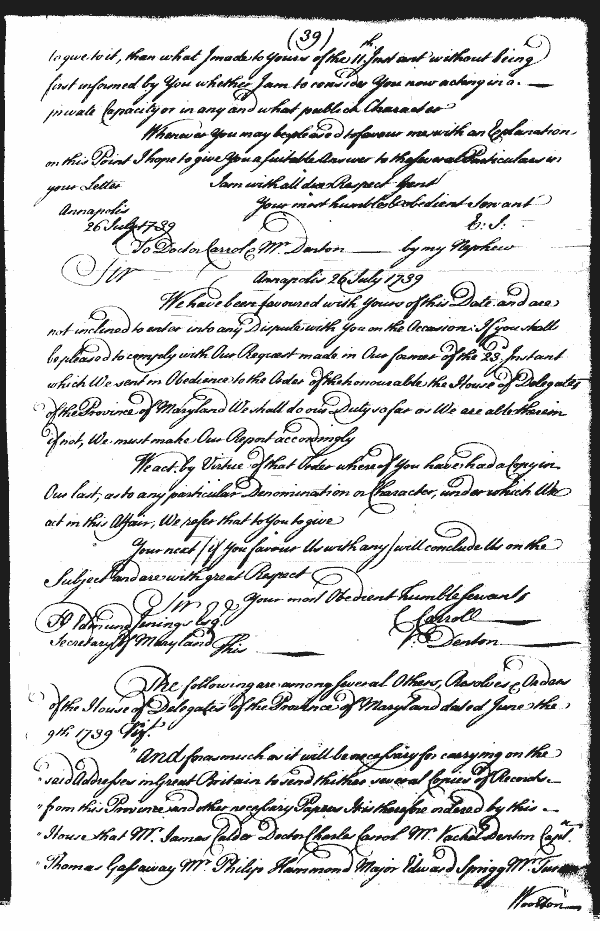 (39)
to give to it, than what I made to yours of the 11th Instant without being
first informed by You whether I am to consider You now acting in a
private Capacity or in any and what publick Character
Whenever You may be pleased to favour me with an Explanation
on this Point I hope to give You a suitable Answer to the several Particulars in
your Letter I am with all due Respect Gent
Your most humble & obedient Servant
Annapolis
26 July 1739 E: J:
To Doctor Carroll & Mr. Denton by my Nephew
Sir Annapolis 26 July 1739
We have been favoured with Yours of this Date and are
not inclined to enter into any Dispute with You on the Occasion: If you shall
be pleased to comply with Our Request made in Our former of the 23 Instant
which We sent in Obedience to the Order of the honourable the House of Delegates
of the Province of Maryland We shall do our Duty so far as We are able therein
if not, We must make Our Report accordingly
We act by Virtue of that Order whereof You have had a Copy in
Our last, as to any particular Denomination or Character, under which We
act in this Affair, We refer that to You to give
Your next /if you favour Us with any/ will conclude Us on the
Subject and are with great Respect
Sir Your most Obedient humble Servants
To Edmund Jenings Esq. C Carroll
Secretary of Maryland This V. Denton
The following are among several Others, Resolves & Orders
of the House of Delegates of the Province of Maryland dated June the
9th 1739 Viz.
"And forasmuch as it will be necessary for carrying on the
"said Addresses in Great Britain to send thither several Copies of Records
"from this Province and other necessary Papers It is therefore ordered by this
"House that Mr. James Calder Doctor Charles Carrol Mr. Vachel Denton Capt.
"Thomas Gassaway Mr. Philip Hammond Major Edward Sprigg Mr. Turnor
Wootton